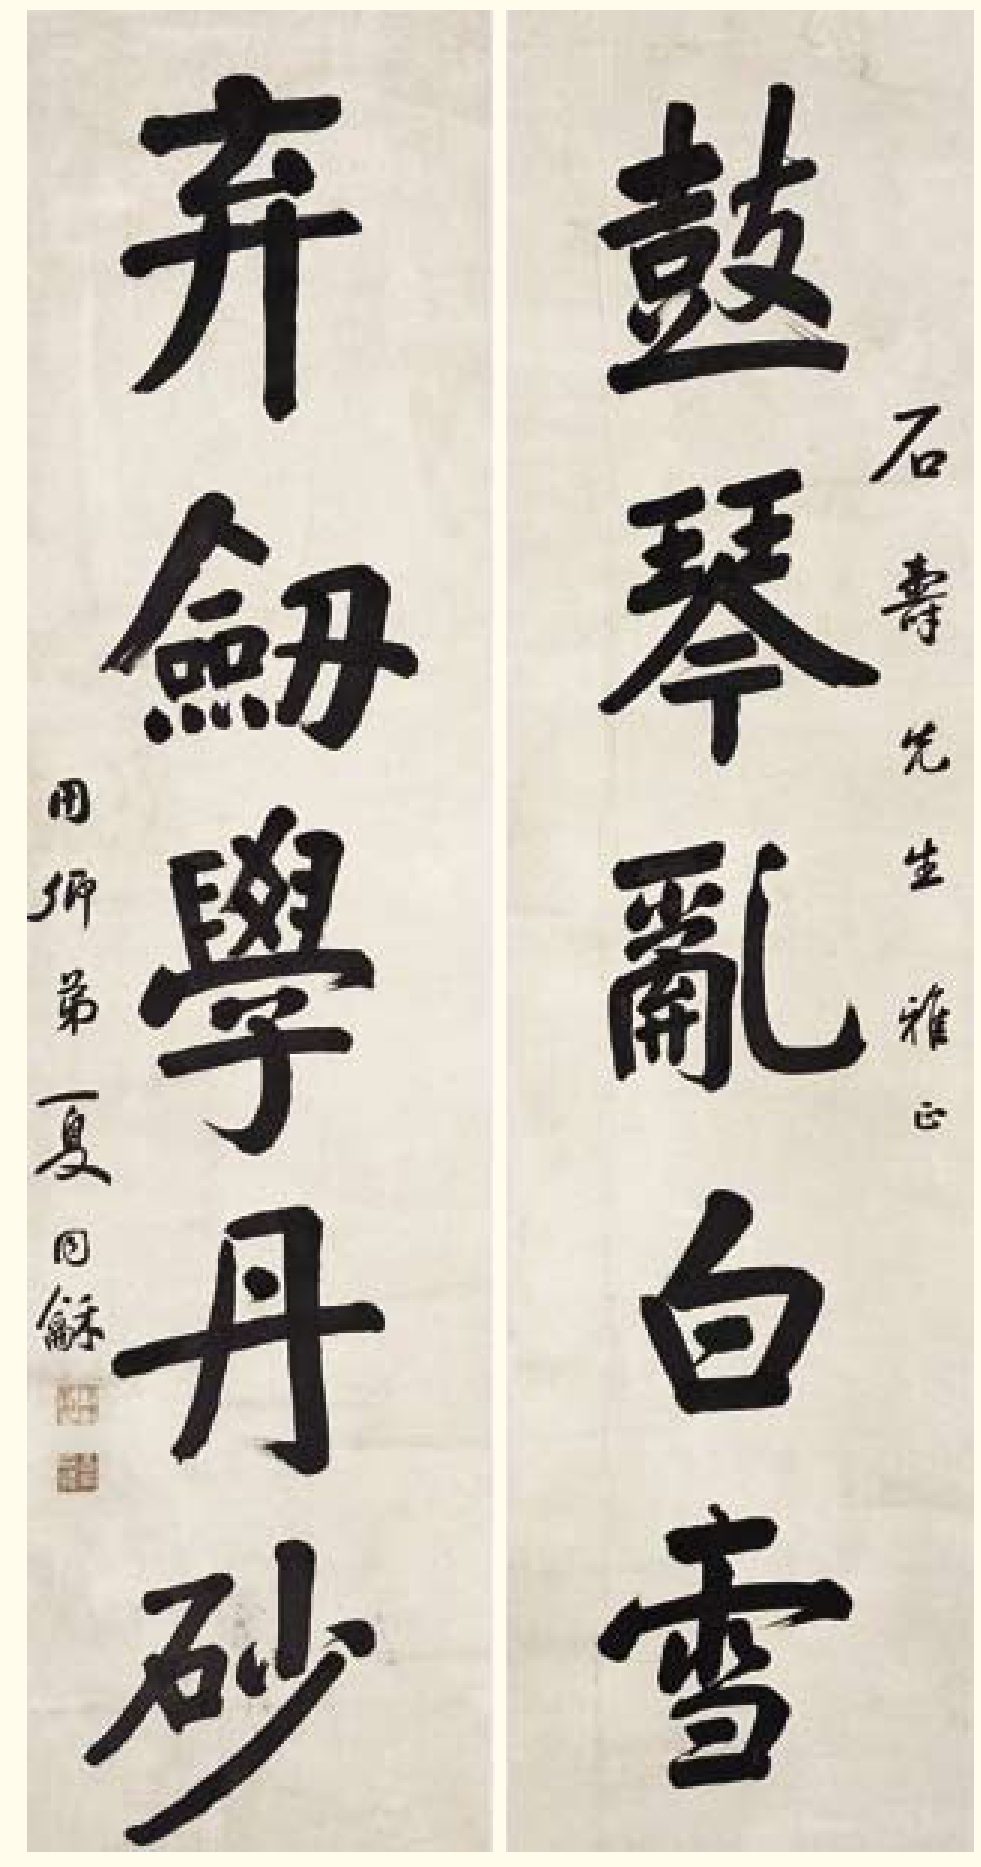 鼓琴亂白雪
石壽先生雅正
弃劒學丹砂
用卿弟夏同龢